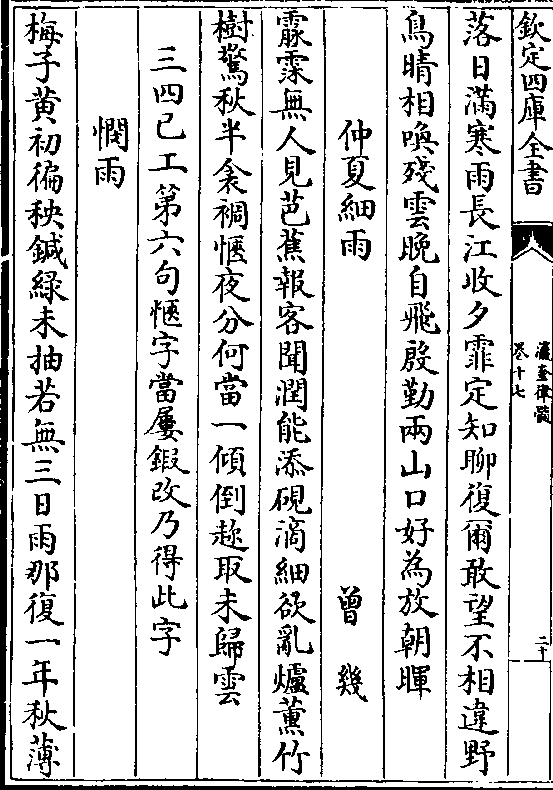 欽定四庫全書
瀛奎律髓
卷十七
二十
落日滿寒雨長江收夕霏定知聊復爾敢望不相違野
鳥晴相喚殘雲晚自飛殷勤兩山口好為放朝暉
仲夏細雨
曾幾
霡霂無人見芭蕉報客聞潤能添硯滴細欲亂爐薰竹
樹驚秋半衾裯愜夜分何當一傾倒趂取未歸雲
三四已工第六句愜字當屢鍛改乃得此字
憫雨
梅子黄初徧秧鍼綠未抽若無三日雨那復一年秋薄